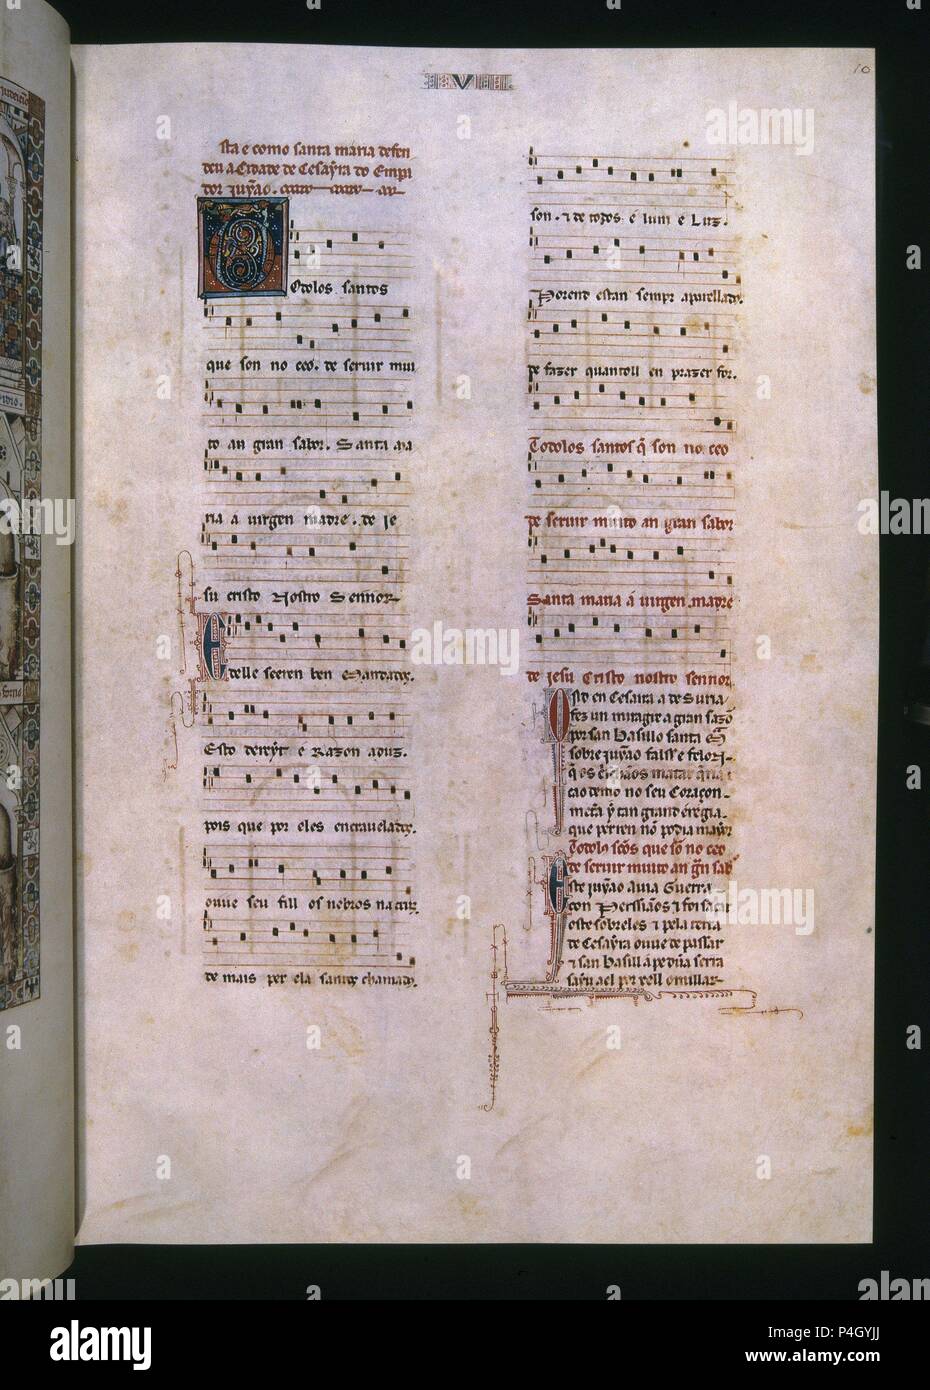 VIII
10
sta e como santa maria defen
deu a Cidade de Cesayra do Empi
dor juyão.
Odolos santos
que son no ceo. de seruir mui
to an gran sabor. Santa Ma
ria a uirgen madre. de je
su cristo Nostro Sennor
E delle seeren ben Mandados.
Esto dereyt e Razon aduz.
pois que por eles encrauelados.
ouue seu fill os nebros na cruz
de mais per ela santos chamados.
son. & de todos é lum e Luz.
Porend estan sempr aparellados.
de fazer quantoll en prazer for.
Todolos santos q̃ son no ceo
de seruir muito an gran sabor
Santa maria a uirgen. madre
de jesu Cristo nostro sennor
sto en Cesaira a de Suria
fez un miragre a gran sazõ
por san Basillo santa
sobre juyão falsse felon
q̃ os c̃chãos matar
cao demo no seu Coraçon
meta y tan grand eregia
que per ren nõ podia mayor
Todolos que sõ no ceo
de seruir muito an sab
ste juyão auia Guerra
con Perssiãos & foi sacar
oste sobreles & pela terra
de Cesayra ouue de passar
& san Basill a pe dũa serra
sayu a el por xell omillar
alamy
Image ID: P4GYJJ
www.alamy.com